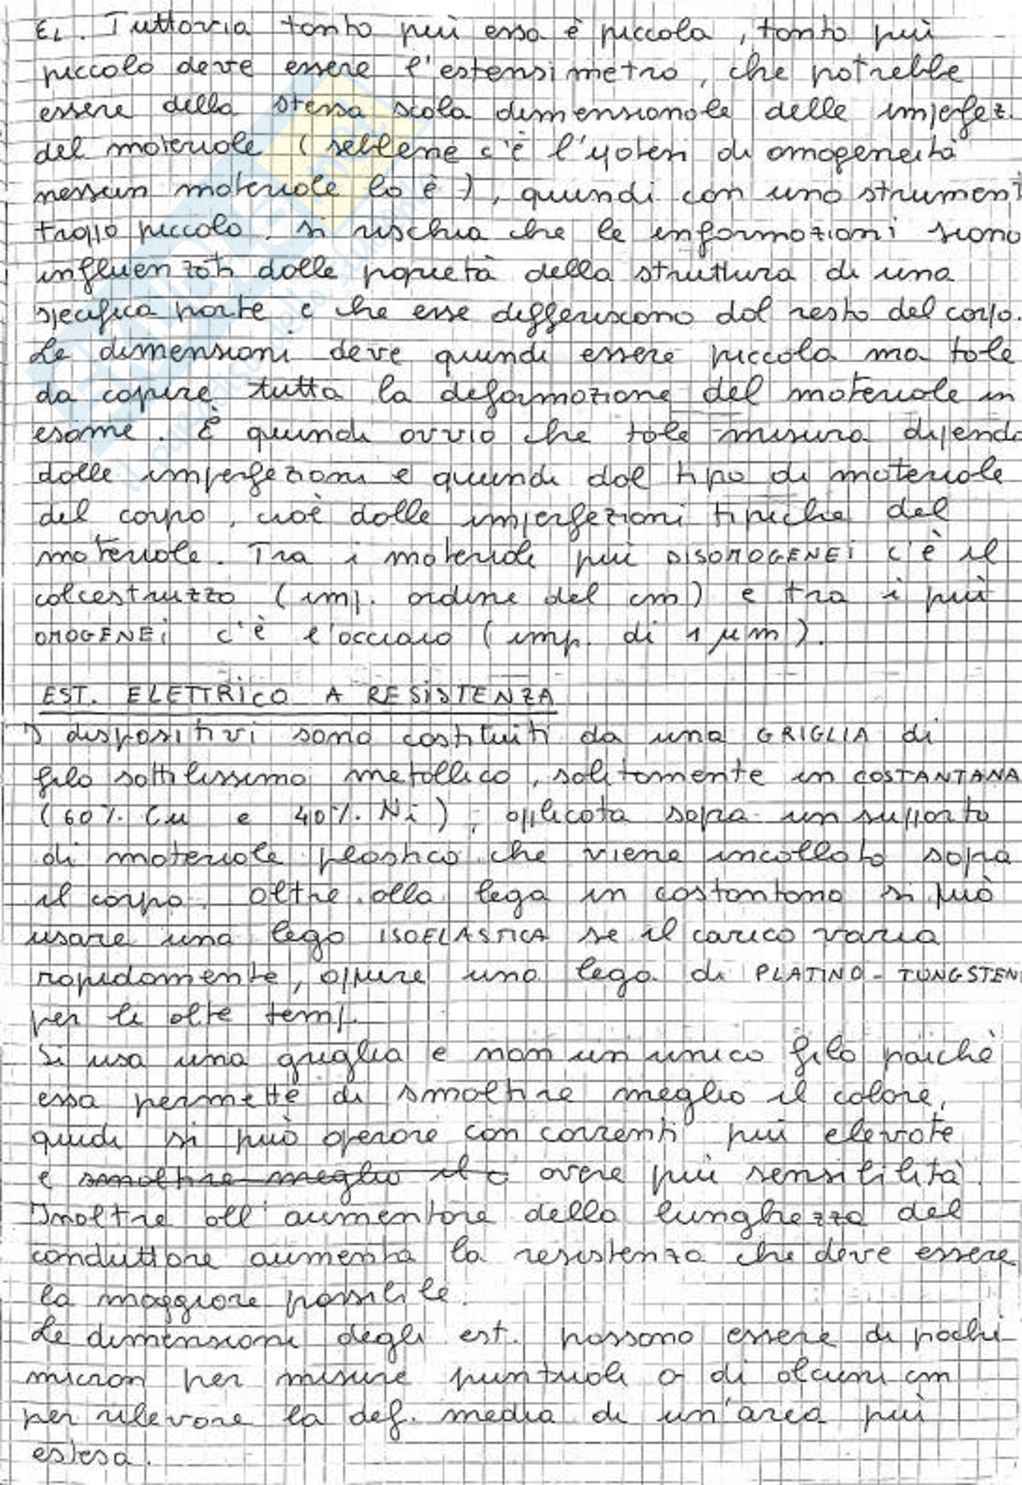 εL. Tuttavia tanto più essa è piccola, tanto più
piccolo deve essere l'estensimetro, che potrebbe
essere della stessa scala dimensionale delle imperfez.
del materiale (sebbene c'è l'ipotesi di omogeneità
nessun materiale lo è), quindi con uno strument
troppo piccolo si rischia che le informazioni siano
influenzati dalle poprietà della struttura di una
specifica parte e che esse differiscono dal resto del corpo.
Le dimensioni deve quindi essere piccola ma tale
da coprire tutta la deformazione del materiale in
esame. È quindi ovvio che tale misura dipenda
dalle imperfezioni e quindi dal tipo di materiale
del corpo, cioè dalle imperfezioni tipiche del
materiale. Tra i materiali più DISOMOGENEI c'è il
calcestruzzo (imp. ordine del cm) e tra i più
OMOGENEI c'è l'acciaio (imp. di 1 μm).
EST. ELETTRICO A RESISTENZA
I dispositivi sono costituiti da una GRIGLIA di
filo sottilissimo metallico, solitamente in COSTANTANA
(60% Cu e 40% Ni), applicata sopra un supporto
di materiale plastico che viene incollato sopra
il corpo. Oltre alla lega in costantana si può
usare una lega ISOELASTICA se il carico varia
rapidamente, oppure una lega di PLATINO-TUNGSTEN
per le alte temp.
Si usa una griglia e non un unico filo poiché
essa permette di smaltire meglio il calore,
quidi si può operare con correnti più elevate
e smaltire meglio il c avere più sensibilità.
Inoltre all'aumentare della lunghezza del
conduttore aumenta la resistenza che deve essere
la maggiore possibile.
Le dimensioni degli est. possono essere di pochi
micron per misure puntuali o di alcuni cm
per rilevare la def. media di un'area più
estesa.